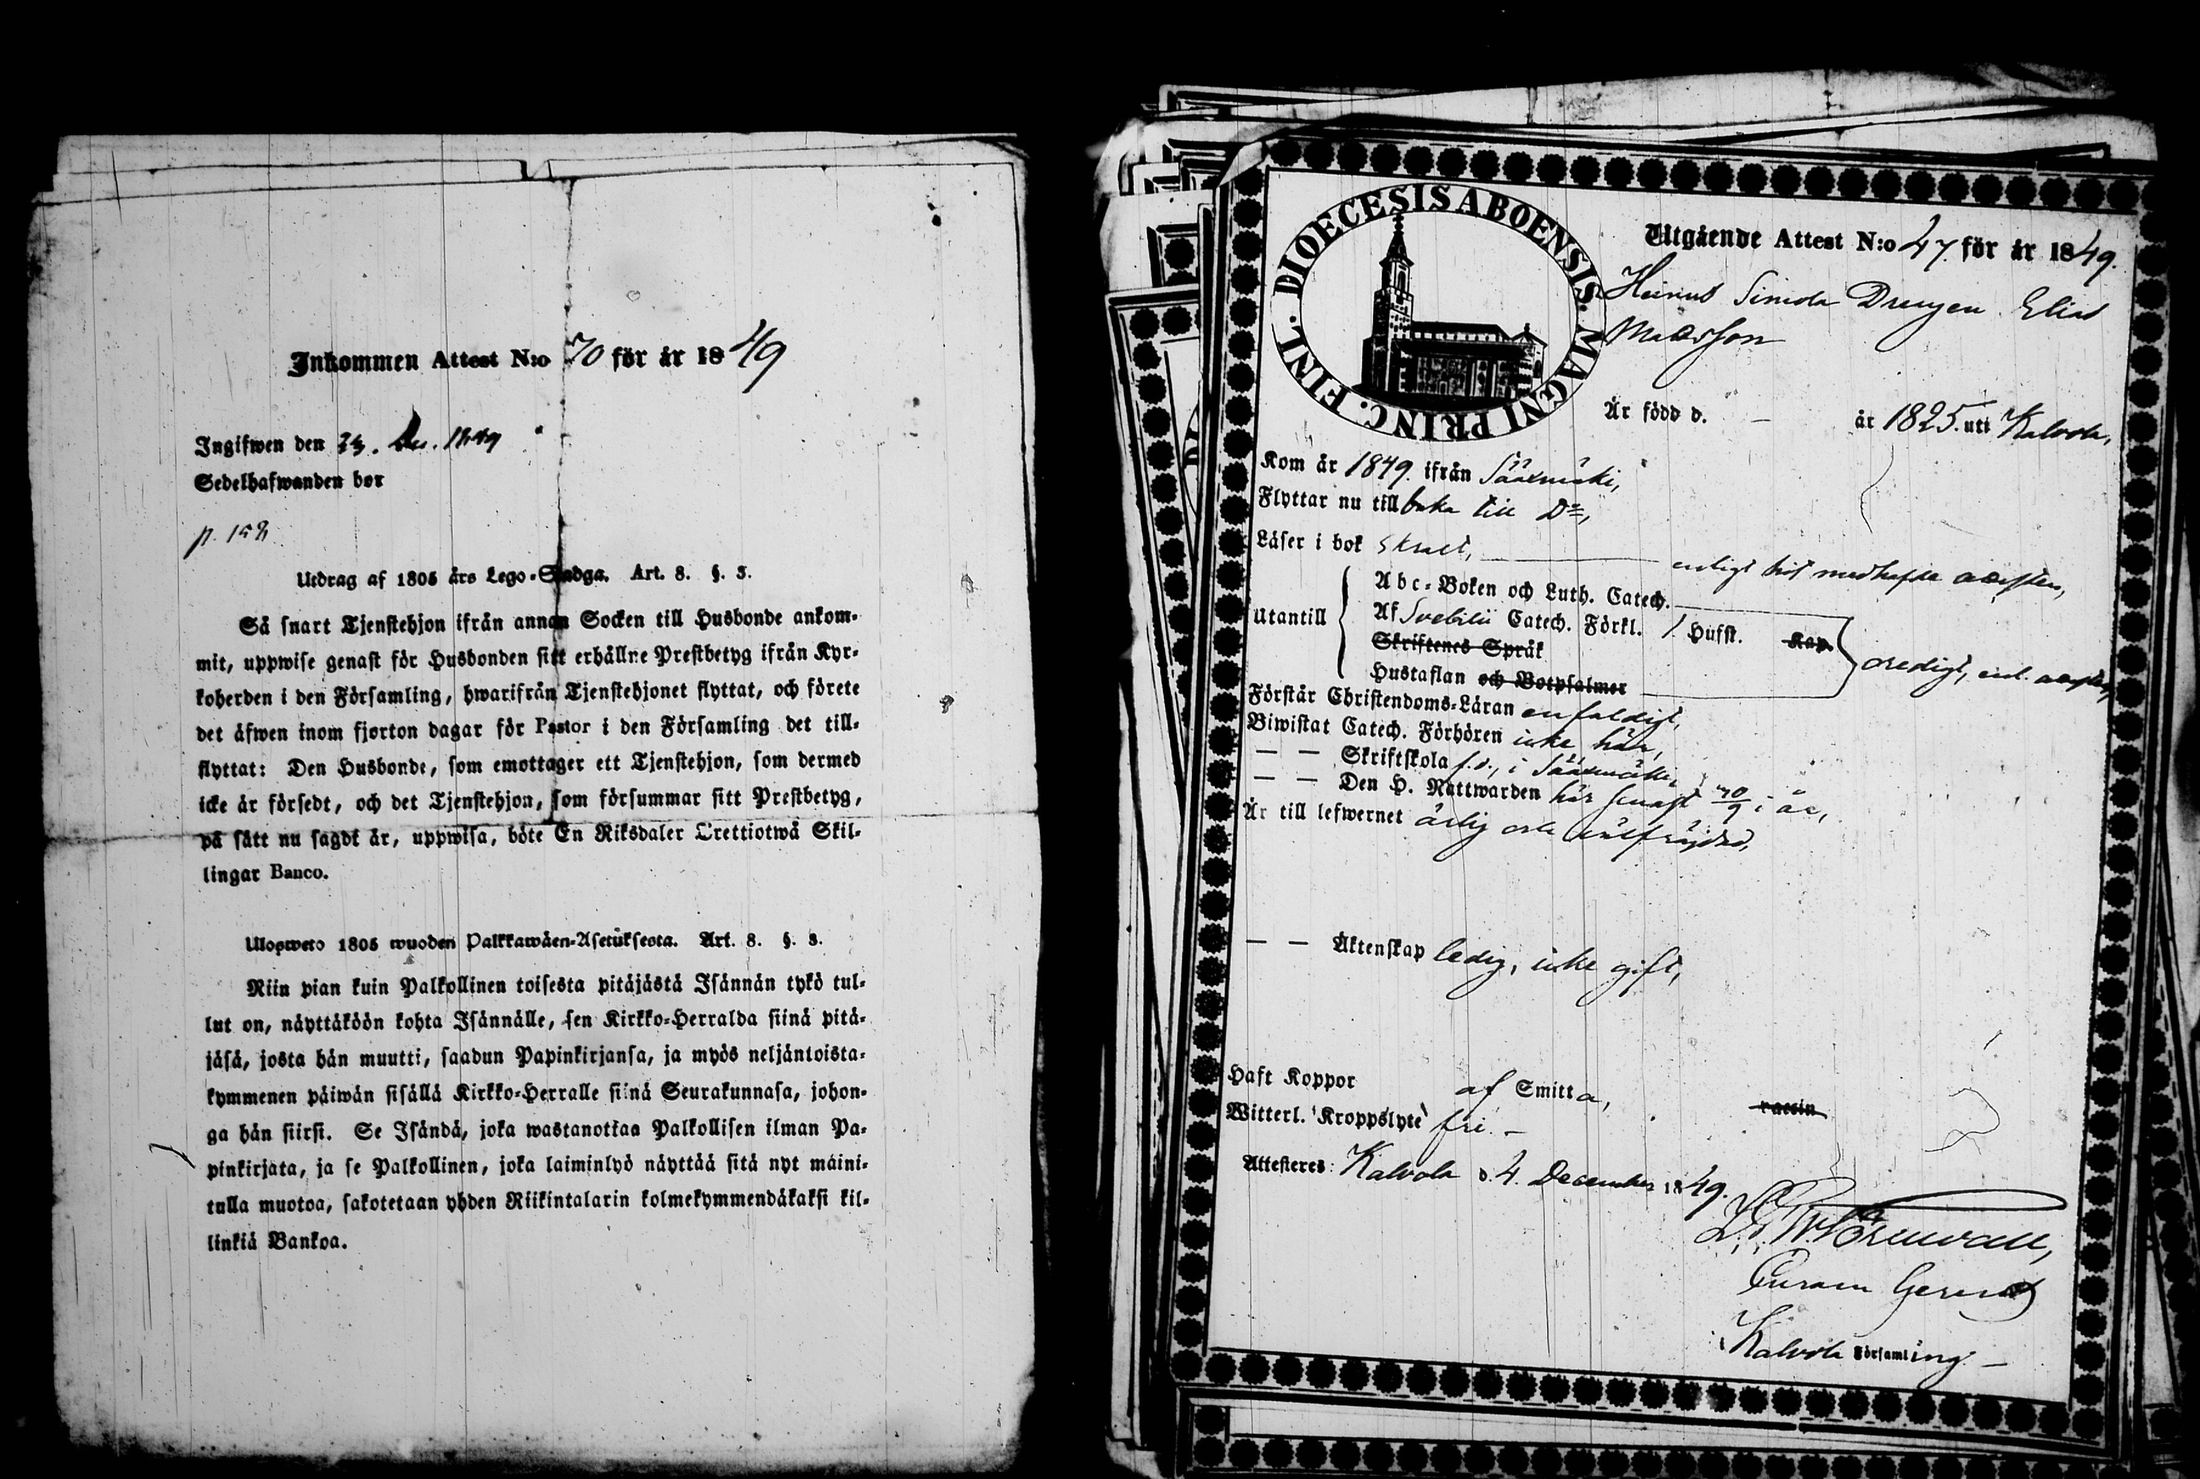 Inkommen Attest N:o 70 för år 1849
Ingifwen den 23. Dec. 1849
Sedelhafwanden bor
p. 152
Utdrag af 1805 års Lego-Stadga. Art. 8. §. 3.
Så snart Tjenstehjon ifrån annan Socken till Husbonde ankom-
mit, uppwise genast för Husbonden sitt erhållne Prestbetyg ifrån Kyr-
koherden i den Församling, hwarifrån Tjenstehjonet flyttat, och förete
det äfwen inom fjorton dagar för Pastor i den Församling det till-
flyttat: Den Husbonde, som emottager ett Tjenstehjon, som dermed
icke är försedt, och det Tjenstehjon, som försummar sitt Prestbetyg,
på sätt nu sagdt är, uppwisa, böte En Riksdaler Trettiotwå Skil-
lingar Banco.
Ulosweto 1805 wuoden Palkkawäen-Asetuksesta. Art. 8. §. 3.
Niin pian kuin Palkollinen toisesta pitäjästä Isännän tykö tul-
lut on, näyttäköön kohta Isännälle, sen Kirkko-Herralda siinä pitä-
jäsä, josta hän muutti, saadun Papinkirjansa, ja myös neljäntoista-
kymmenen päiwän sisällä Kirkko-Herralle siinä Seurakunnasa, johon-
ga hän siirsi. Se Isändä, joka wastanottaa Palkollisen ilman Pa-
pinkirjata, ja se Palkollinen, joka laiminlyö näyttää sitä nyt maini-
tulla muotoa, sakotetaan yhden Riikintalarin kolmekymmendäkaksi kil-
linkiä Bankoa.
DIOECESIS ABOENSIS. MAGNI PRINC. FINL.
Utgående Attest N:o 47 för år 1849.
Simola Drengen Elias
Matsson
Är född d. — år 1825. uti Kalvola,
Kom år 1849. ifrån Sääxmäki,
Flyttar nu till baka till Do,
Läser i bok svalt, enligt hit medhafde attesten,
Utantill
Abc-Boken och Luth. Catech.
Af Svebilii Catech. Förkl. 1. Hufst. Kap.
Skriftenes Språk
Hustaflan och Botpsalmer
oredigt, enl. attesten,
Förstår Christendoms-Läran enfaldigt,
Biwistat Catech. Förhören icke här,
— — Skriftskola f.d., i Sääxmäki,
— — Den H. Nattwarden här senast 30/9 i år,
Är till lefwernet ärlig och välfräjdad,
— — Äktenskap ledig, icke gift,
Haft Koppor af Smitta, vaccin
Witterl. Kroppslyte fri. —
Attesteres: Kalvola d. 4. December 1849.
i Kalvola Församling —